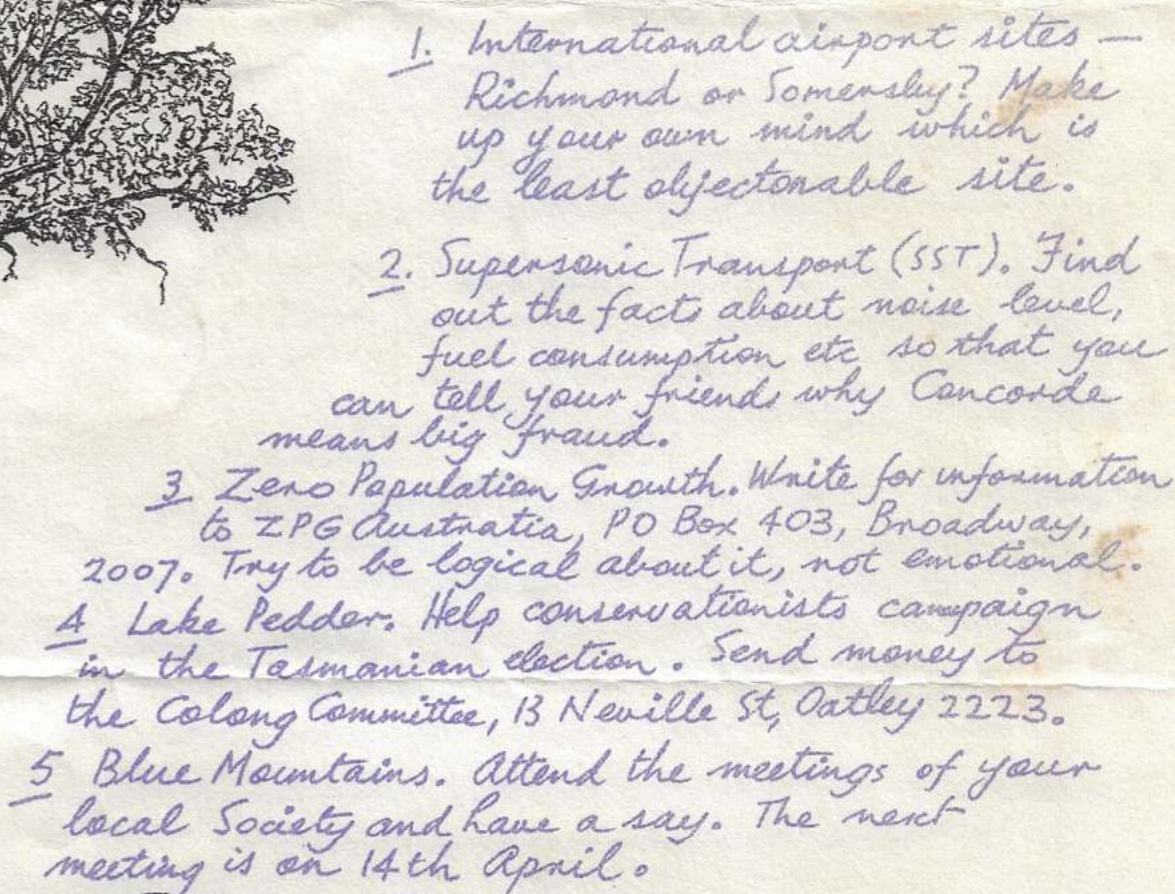 1. International airport sites —
Richmond or Somersby? Make
up your own mind which is
the least objectonable site.
2. Supersonic Transport (SST). Find
out the facts about noise level,
fuel consumption etc so that you
can tell your friends why Concorde
means big fraud.
3 Zero Population Growth. Write for information
to ZPG Australia, PO Box 403, Broadway,
2007. Try to be logical about it, not emotional.
4 Lake Pedder. Help conservationists campaign
in the Tasmanian election. Send money to
the Colong Committee, 13 Neville St, Oatley 2223.
5 Blue Mountains. Attend the meetings of your
local Society and have a say. The next
meeting is on 14th April.